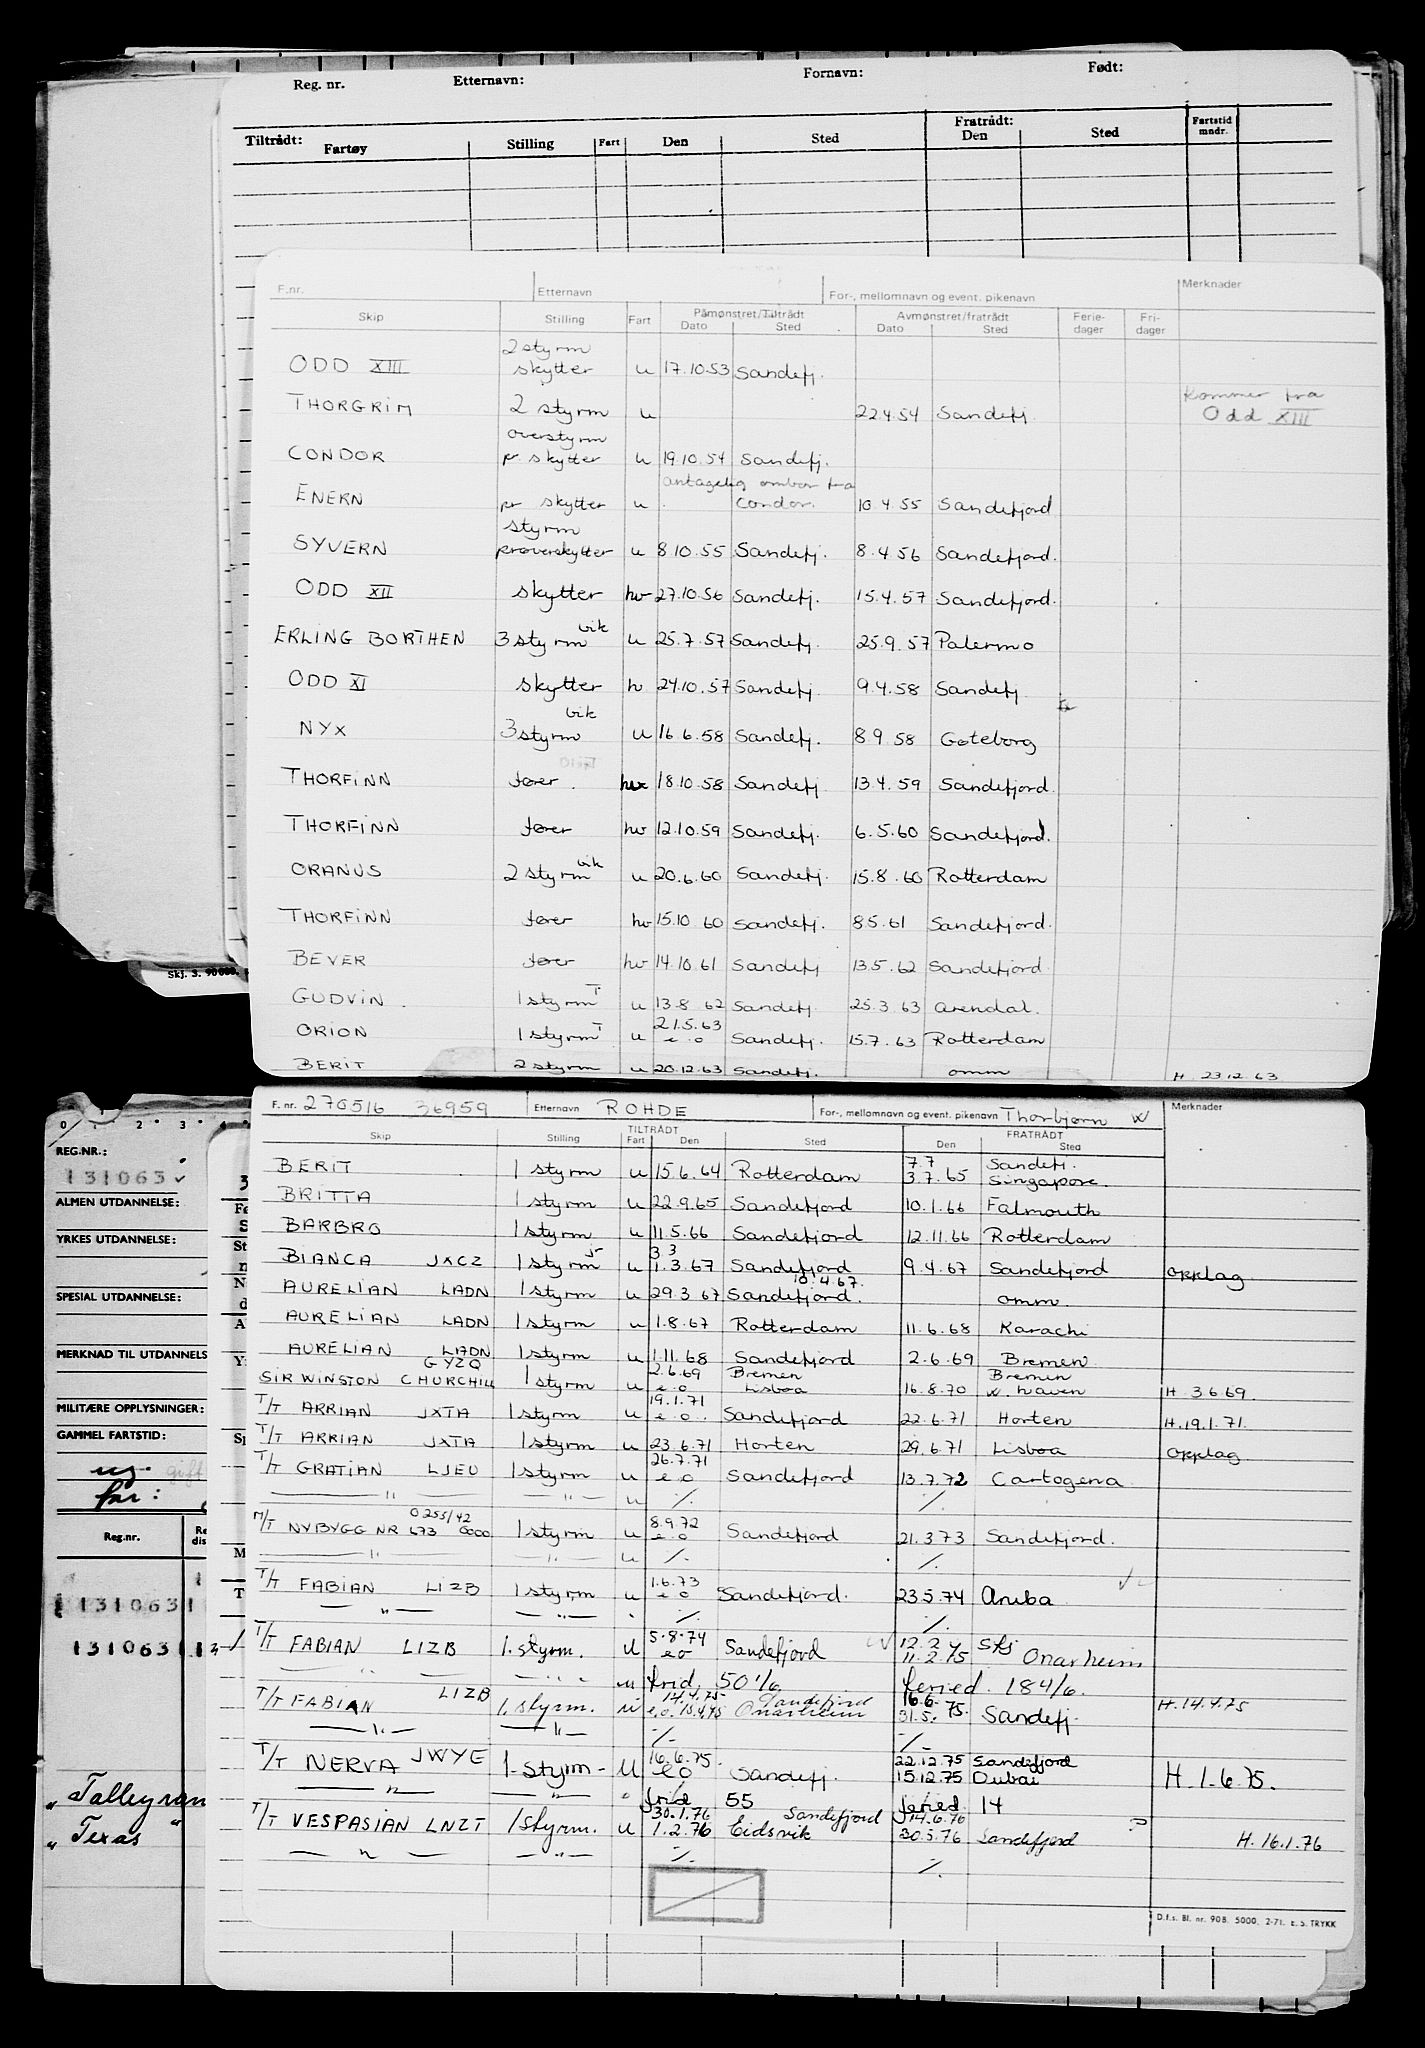 Reg. nr. Etternavn: Fornavn: Født:
Tiltrådt: Fratrådt: Fartstid mndr.
Fartøy Stilling Fart Den Sted Den Sted
F.nr. Etternavn For-, mellomnavn og event. pikenavn Merknader
Skip Stilling Fart Påmønstret/Tiltrådt Avmønstret/fratrådt Ferie-dager Fri-dager
Dato Sted Dato Sted
2 styrm
ODD XIII skytter u 17.10.53 Sandefj.
THORGRIM 2 styrm u 22.4.54 Sandefj. Kommer fra Odd XIII
overstyrm
CONDOR pr. skytter u 19.10.54 Sandefj.
antagelig ombor fra
ENERN pr skytter u Condor. 10.4.55 Sandefjord
styrm
SYVERN prøverskytter u 8.10.55 Sandefj. 8.4.56 Sandefjord.
ODD XII skytter hv 27.10.56 Sandefj. 15.4.57 Sandefjord.
ERLING BORTHEN 3 styrm vik u 25.7.57 Sandefj. 25.9.57 Palermo
ODD XI skytter h 24.10.57 Sandefj. 9.4.58 Sandefj
NYX 3 styrm vik u 16.6.58 Sandefj. 8.9.58 Gøteborg
THORFINN fører. hv 18.10.58 Sandefj. 13.4.59 Sandefjord.
THORFINN fører hv 12.10.59 Sandefj. 6.5.60 Sandefjord.
ORANUS 2 styrm vik u 20.6.60 Sandefj. 15.8.60 Rotterdam
THORFINN fører hv 15.10 60 Sandefj. 8.5.61 Sandefjord.
BEVER fører hv 14.10.61 Sandefj 13.5.62 Sandefjord.
GUDVIN. 1 styrm T u 13.8 62 Sandefj. 25.3.63 Arendal.
21.5.63
ORION 1 styrm T u e.o Sandefj. 15.7.63 Rotterdam
BERIT 2 styrm u 20.12.63 Sandefj. omm H. 23.12.63
F. nr. 270516 36959 Etternavn ROHDE For-, mellomnavn og event. pikenavn Thorbjørn W Merknader
Skip Stilling TILTRÅDT Fart Den Sted FRATRÅDT Den Sted
7.7 Sandefj.
BERIT 1 styrm u 15.6.64 Rotterdam 3.7.65 Singapore.
BRITTA 1 styrm u 22.9.65 Sandefjord 10.1.66 Falmouth
BARBRO 1 styrm u 11.5.66 Sandefjord 12.11.66 Rotterdam
3 3
BIANCA JXCZ 1 styrm u 1.3.67 Sandefjord 9.4.67 Sandefjord opplag
10.4.67.
AURELIAN LADN 1 styrm u 29.3 67 Sandefjord. omm.
AURELIAN LADN 1 styrm u 1.8.67 Rotterdam 11.6.68 Karachi
AURELIAN LADN 1 styrm u 1.11.68 Sandefjord 2.6.69 Bremen
GYZQ 2.6.69 Bremen Bremen
SIR WINSTON CHURCHILL 1 styrm u e.o Lisboa 16.8.70 W. haven H 3.6.69.
19.1.71
T/T ARRIAN JXTA 1 styrm u e.o. Sandefjord 22.6.71 Horten H.19.1.71.
T/T ARRIAN JXTA 1 styrm u 23.6.71 Horten 29.6.71 Lisboa opplag
26.7.71
T/T GRATIAN LJEU 1 styrm u e.o Sandefjord 13.7.72 Cartogena
— " — — " — u ·/. ·/.
0255/42 8.9.72
M/T NYBYGG NR 673 0000 1 styrm u e.o Sandefjord 21.3.73 Sandefjord.
— " — — " — u ·/. ·/.
1.6.73
T/T FABIAN LIZB 1 styrm u e.o Sandefjord. 23.5.74 Aruba
— " — — " — ·/. ·/.
5.8.74 12.2
T/T FABIAN LIZB 1. styrm. u e.o Sandefjord 11.2.75 Onarheim
— " — — " — u frid 50 1/6 feried. 184/6.
14.4.75 Sandefjord 16.6.
T/T FABIAN LIZB 1. styrm. u e.o. 15.4.75 Onarheim 31.5.75. Sandefj. H.14.4.75
— " — — " — ·/. ·/.
16.6.75. 22.12.75 Sandefjord
T/T NERVA JWYE 1. styrm. u e.o Sandefj. 15.12.75 Dubai H.1.6.75.
— " — — " — frid 55 feried. 14
30.1.76 Sandefjord 14.6.76
T/T VESPASIAN LNZT 1 styrm. u 1.2.76 Eidsvik 30.5.76 Sandefjord ? H.16.1.76
— " — — " — ·/. ·/.
D.f.s. Bl. nr. 908. 5000. 2-71. E. S. TRYKK
Skj. S. 90000.
0 1 2 3 4
REG.NR.:
131063
ALMEN UTDANNELSE:
YRKES UTDANNELSE:
SPESIAL UTDANNELSE:
MERKNAD TIL UTDANNELS
MILITÆRE OPPLYSNINGER:
GAMMEL FARTSTID:
ug. gift
far:
Reg.nr.
131063
131063
" Talleyran
" Texas "